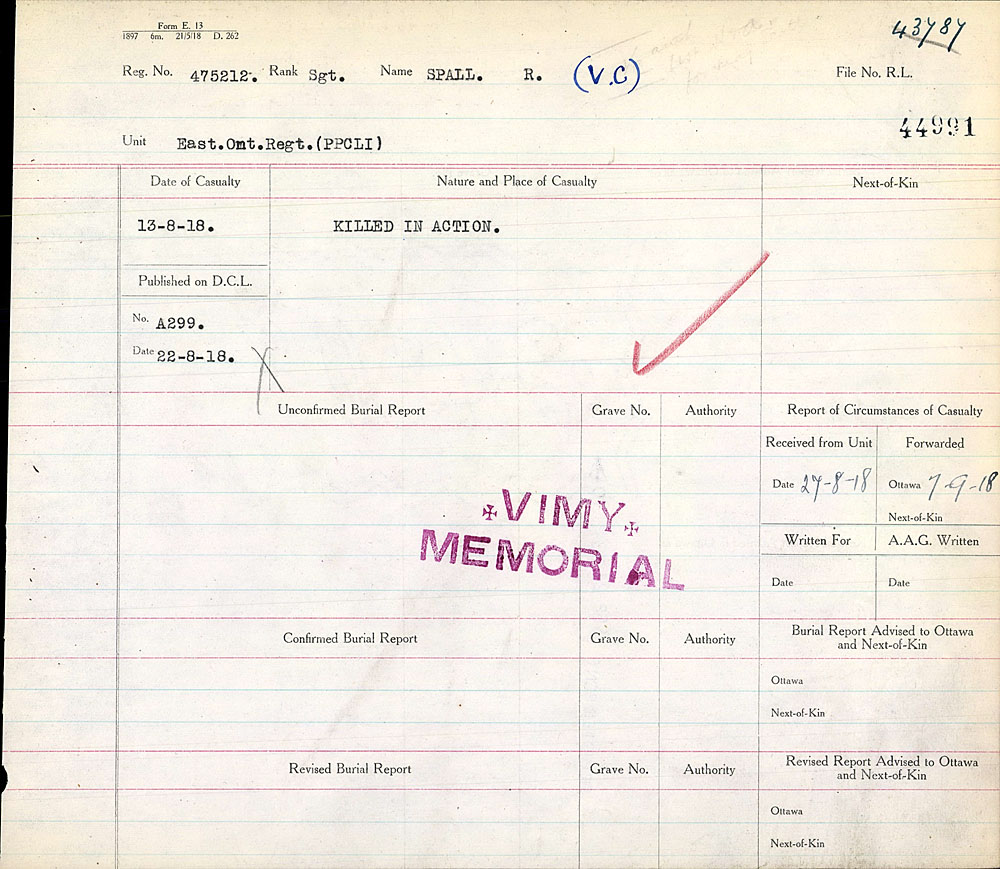 Form E. 13
1897 6m. 21/5/18 D. 262
43787
Reg. No. 475212. Rank Sgt. Name SPALL. R. (V.C) File No. R.L.
44991
Unit East.Ont.Regt.(PPCLI)
Date of Casualty Nature and Place of Casualty Next-of-Kin
13-8-18. KILLED IN ACTION.
Published on D.C.L.
No. A299.
Date 22-8-18.
Unconfirmed Burial Report Grave No. Authority Report of Circumstances of Casualty
Received from Unit Forwarded
Date 27-8-18 Ottawa 7-9-18
Next-of-Kin
VIMY
MEMORIAL
Written For A.A.G. Written
Date Date
Confirmed Burial Report Grave No. Authority Burial Report Advised to Ottawa
and Next-of-Kin
Ottawa
Next-of-Kin
Revised Burial Report Grave No. Authority Revised Report Advised to Ottawa
and Next-of-Kin
Ottawa
Next-of-Kin